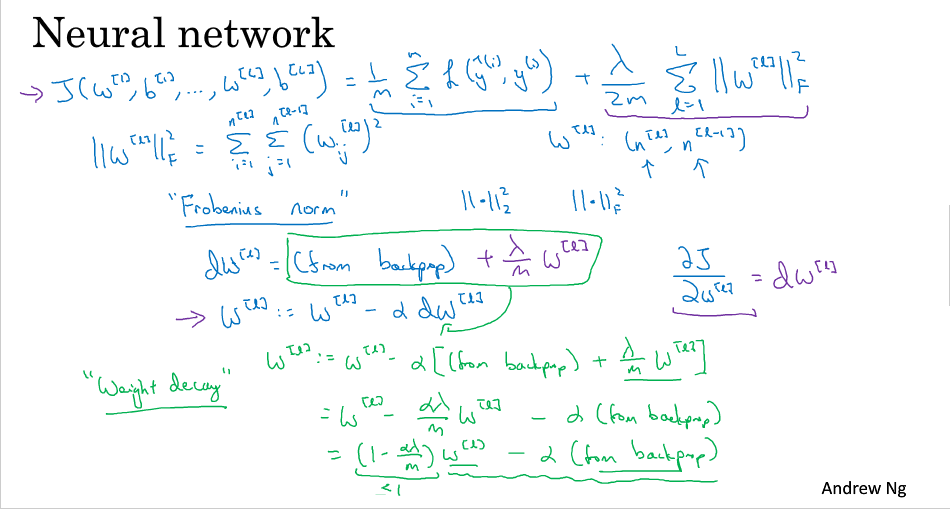 Neural network
→ J(w^[1], b^[1], ..., w^[L], b^[L]) = 1/m Σ_{i=1}^{m} L(ŷ^(i), y^(i)) + λ/2m Σ_{l=1}^{L} ||w^[l]||²_F
||w^[l]||²_F = Σ_{i=1}^{n^[l]} Σ_{j=1}^{n^[l-1]} (w_ij^[l])²    w^[l]: (n^[l], n^[l-1])
↑ ↑
"Frobenius norm"    ||·||²_2    ||·||²_F
dw^[l] = (from backprop) + λ/m w^[l]
∂J/∂w^[l] = dw^[l]
→ w^[l] := w^[l] - α dw^[l]
"Weight decay"
w^[l] := w^[l] - α[(from backprop) + λ/m w^[l]]
= w^[l] - αλ/m w^[l] - α (from backprop)
= (1 - αλ/m) w^[l] - α (from backprop)
<1
Andrew Ng